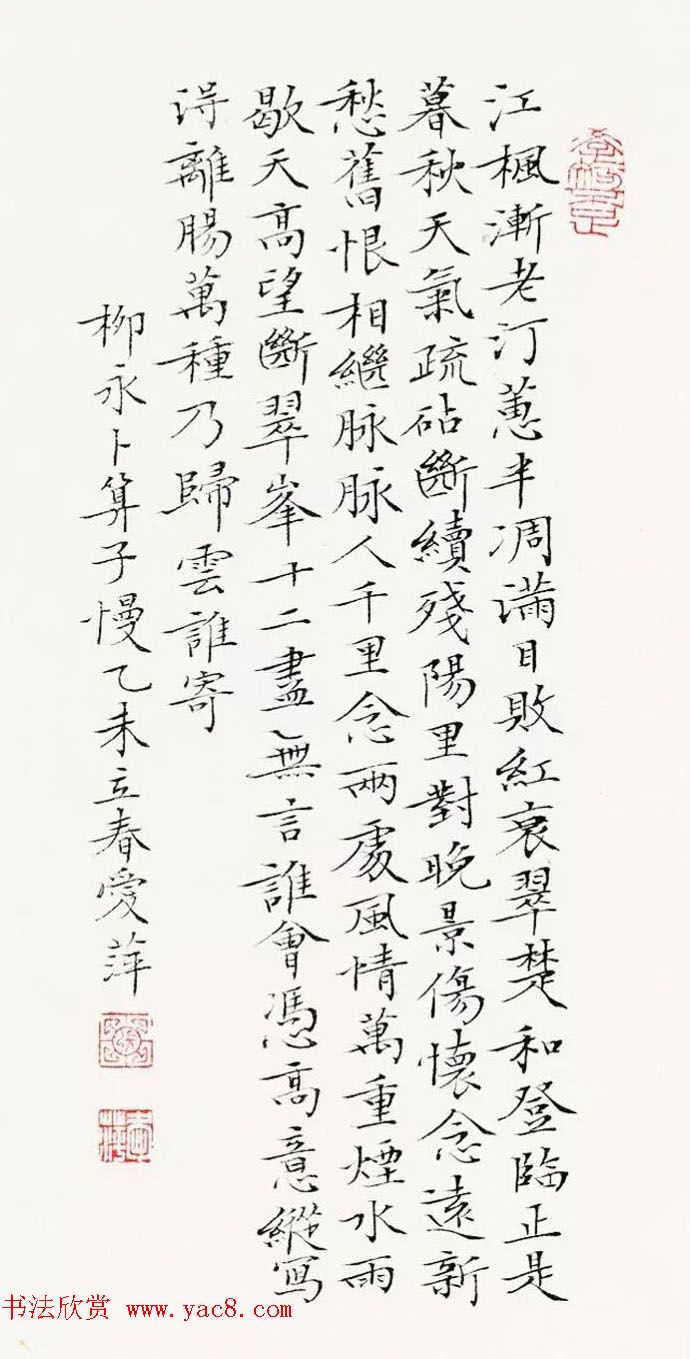 江楓漸老汀蕙半凋滿目敗紅衰翠楚和登臨正是
暮秋天氣疏砧斷續殘陽里對晚景傷懷念遠新
愁舊恨相繼脉脉人千里念兩處風情萬重煙水雨
歇天高望斷翠峯十二盡無言誰會憑高意縱寫
得離腸萬種乃歸雲誰寄
柳永卜算子慢乙未立春愛萍
书法欣赏 www.yac8.com